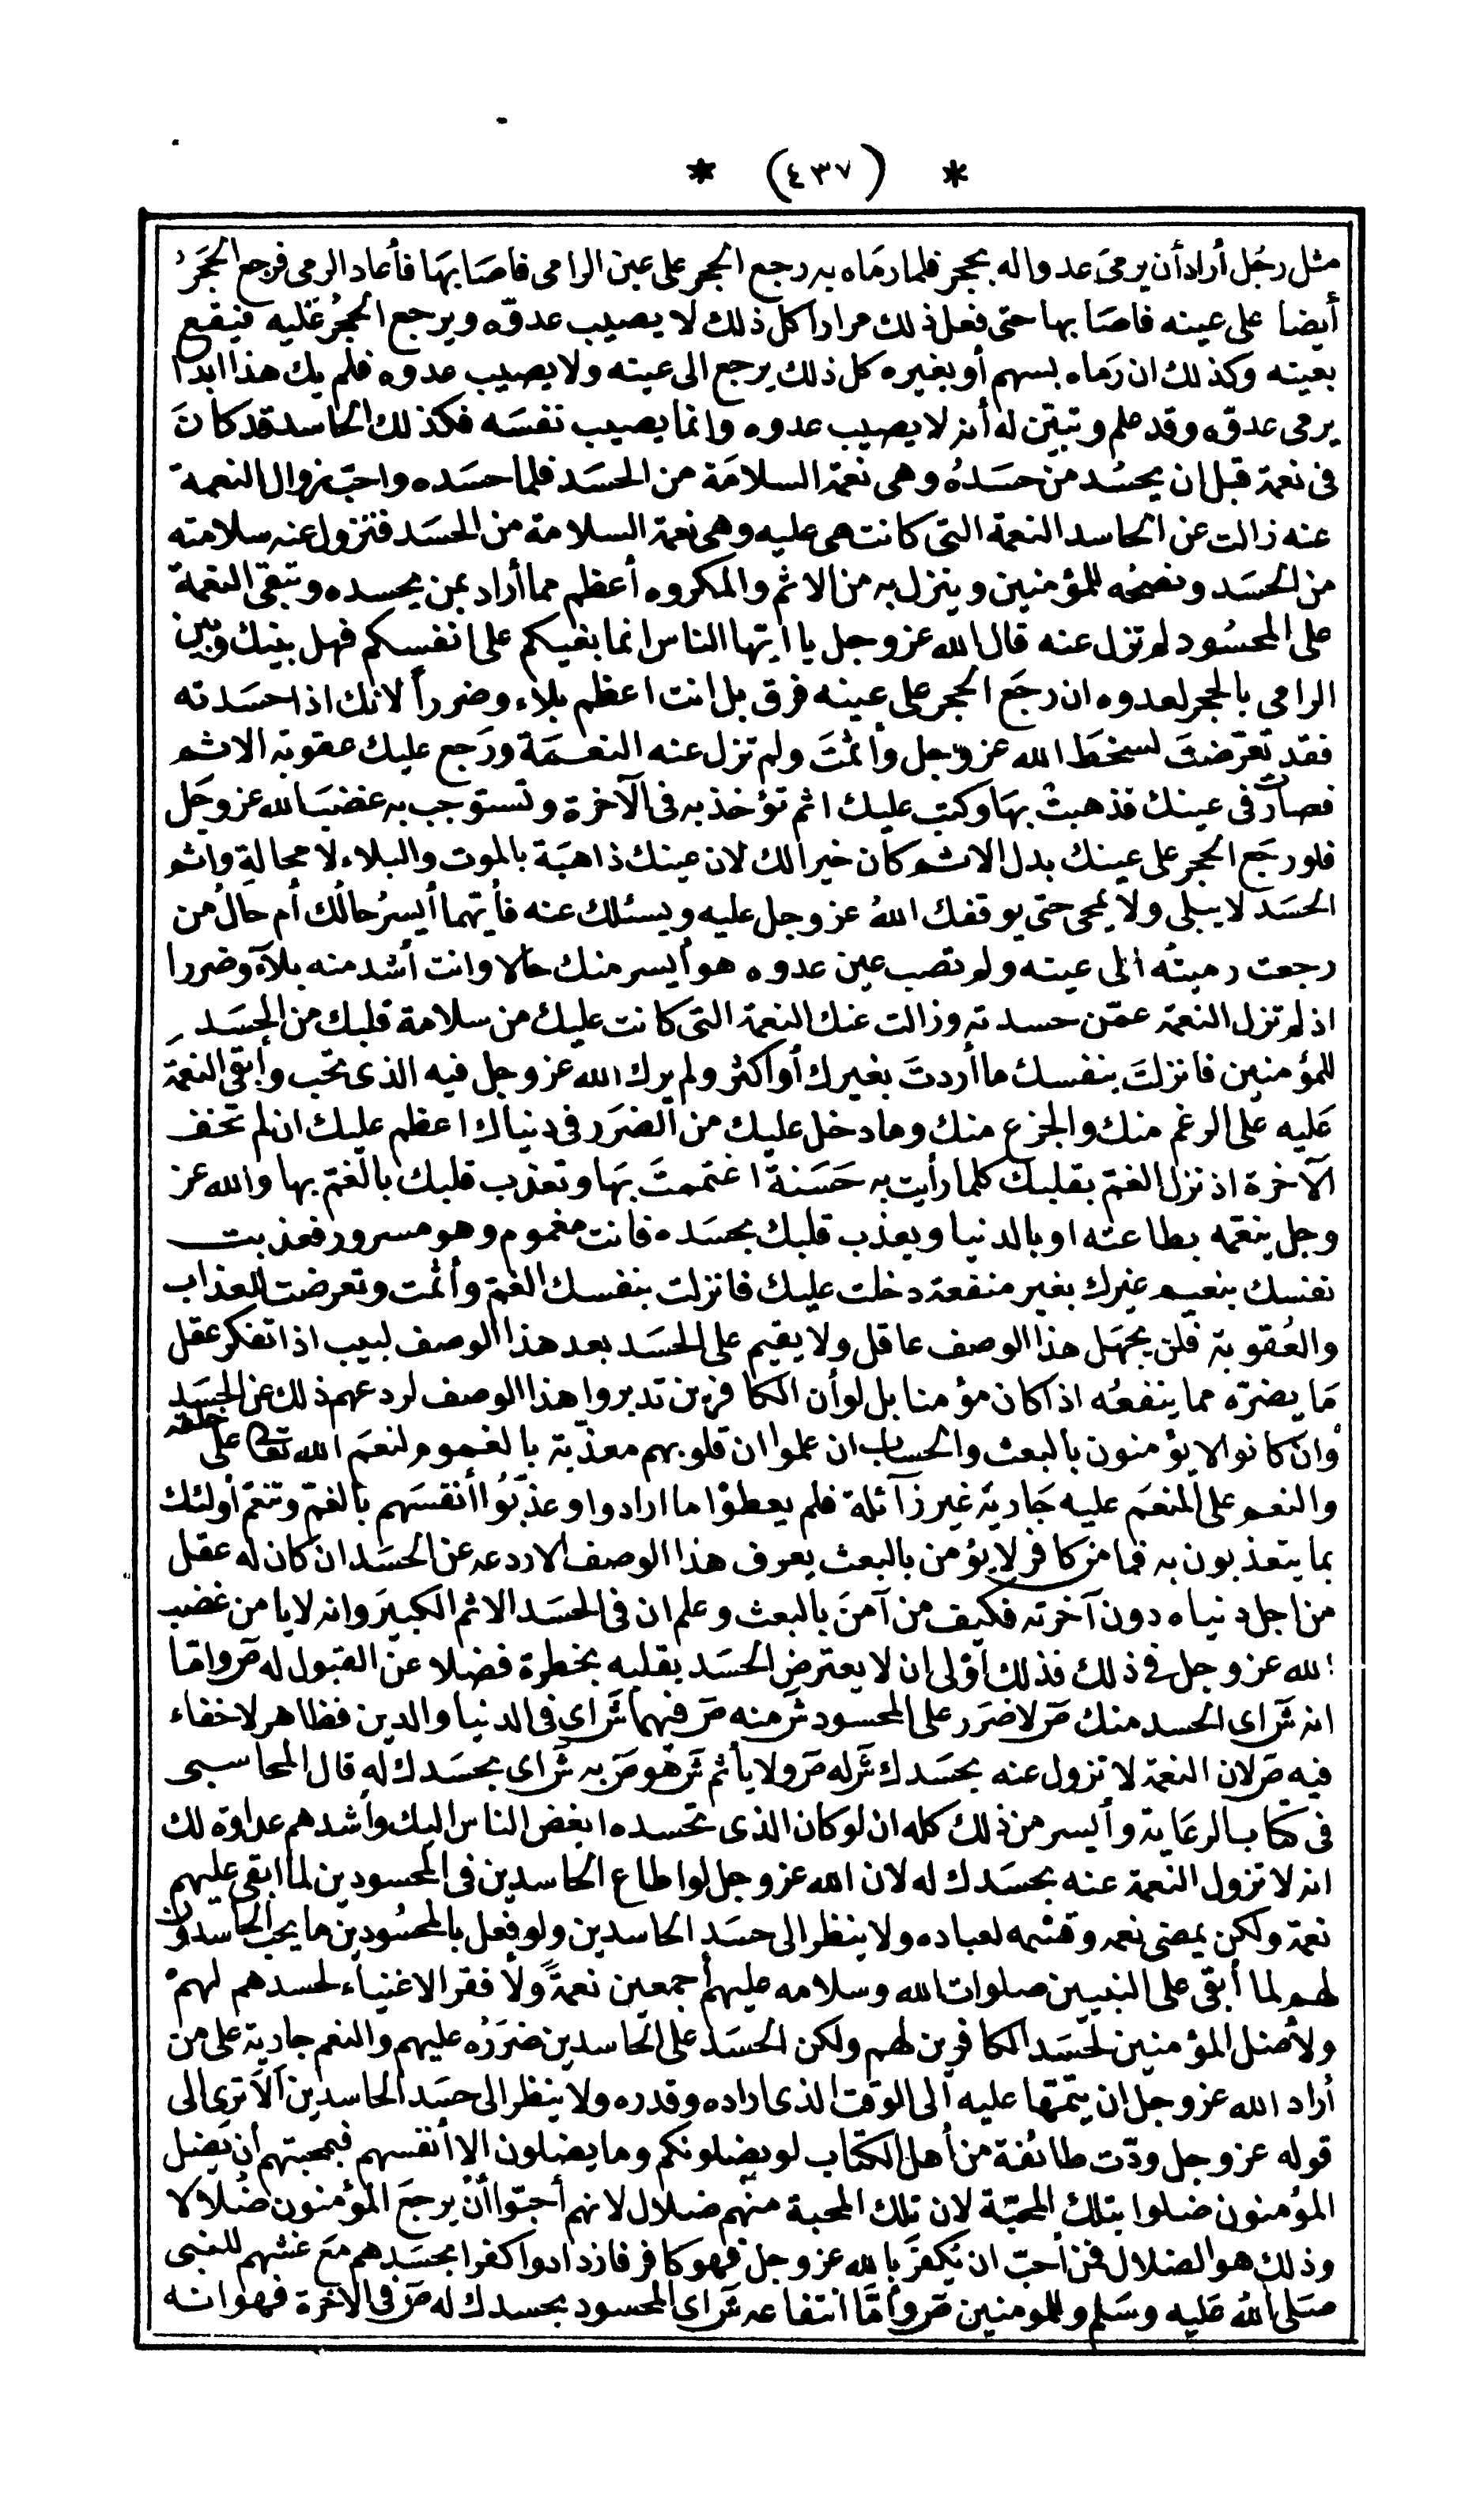 * (٤٣٧) *
مثل رجُل أراد أن يرمىَ عدوا له بحجر فلما رمَاه به رجع الحجر على عين الرامى فاصَا بهَا فأعاد الرمى فرجع الحجَرُ
أيضا على عينه فاصَا بها حتى فعل ذلك مرارا كل ذلك لا يصيب عدوّه ويرجع الحجرُ عَليه فيقع
بعينه وكذلك ان رَماه بسهم أو بغيره كل ذلك يرجع الى عينه ولا يصيب عدوه فلم يك هذا ابدا
يرمى عدوّه وقد علم وتبيّن له أنه لا يصيب عدوه وانما يصيب نفسَه فكذلك الحاسد قد كانَ
فى نعمة قبل ان يحسُد من حسَدهُ وهى نعمة السلامَة من الحسَد فلما حسَده واحبّ زوال النعمة
عنه زالت عن الحاسد النعمة التى كانت هى عليه وهى نعمة السلامة من الحسَد فتزول عنه سلامته
من الحسَد ونصحُه للمؤمنين وينزل به من الاثم والمكروه أعظم مما أراد بمن يحسده وتبقى النعمة
على المحسُود لم تزل عنه قال الله عز وجل يا ايها الناس انما بغيكم على انفسكم فهل بينك وبين
الرامى بالحجر لعدوه ان رجَع الحجر على عينه فرق بل انت اعظم بلاء وضرراً لانك اذا حسَدته
فقد تعرّضتَ لسخَط الله عز وجل وأثمتَ ولم تزل عنه النعمَة ورَجع عليك عقوبة الاثم
فصارَت فى عينك فذهبتْ بهَا وكتب عليك اثم تؤخذ به فى الآخرة وتستوجب به غضبَ الله عز وجَل
فلو رجَع الحجر على عينك بدل الاثم كان خيرا لك لان عينك ذاهبَة بالموت والبلاء لا محالة واثم
الحسَد لا يبلى ولا يمحى حتى يوقفك اللهُ عز وجل عليه ويسئلك عنه فأيّهما أيسرُ حالُك أم حَالُ من
رجعت رميتُه الى عينه ولم تصب عين عدوه هو أيسر منك حالا وانت أشد منه بلآء وضررا
اذ لم تزل النعمة عمّن حسدته وزالت عنك النعمة التى كانت عليك من سلامة قلبك من الحسَد
للمؤمنين فانزلتَ بنفسك ما أردتَ بغيرك أو اكثر ولم يرك الله عز وجل فيه الذى تحب وأبقى النعمَة
عَليه على الرغم منك والجزع منك وما دخل عليك من الضرَر فى دنياك اعظم عليك ان لم تخف
الآخرة اذ نزل الغم بقلبك كلما رأيت به حَسَنة اغتممتَ بهَا وتعذب قلبك بالغم بها والله عز
وجل ينعمه بطاعته او بالدنيا ويعذب قلبك بحسَده فانت مغموم وهو مسرور فعذبت
نفسك بنعيم غيرك بغير منفعة دخلت عليك فانزلت بنفسك الغم وأثمت وتعرضت للعذاب
والعُقوبة فلن يجهَل هذا الوصف عاقل ولا يقيم على الحسَد بعد هذا الوصف لبيب اذا تفكر عقل
مَا يضرّه مما ينفعُه اذا كان مؤمنا بل لو أن الكافرين تدبروا هذا الوصف لردعهم ذلك عن الحسَد
وانْ كانوا لا يؤمنون بالبعث والحساب ان علموا ان قلوبهم معذبة بالغموم لنعمَ الله تعالى على خلقه
والنعم على المنعَم عليه جَارية غير زآئلة فلم يعطوْا ما ارادوا وعذبُوا أنفسَهم بالغم وتنعّم أولئك
بما يتعذبون به فما من كافر لا يؤمن بالبعث يعرف هذا الوصف الا ردعه عن الحسَد ان كان له عقل
من اجل دنياه دون آخرته فكيف من آمنَ بالبعث وعلم ان فى الحسَد الاثم الكبيرَ وانه لا يامن غضب
الله عز وجل فى ذلك فذلك اولى ان لا يعترض الحسَد بقلبه بخطرة فضلا عن القبول له صَ وامّا
انه شَ اى الحسد منك صَ لا ضرَر على المحسود شَ منه صَ فيهما شَ اى فى الدنيا والدين فظاهر لا خفاء
فيه صَ لان النعمة لا تزول عنه بحسَدك شَ له صَ ولا يأثم شَ هو صَ به شَ اى بحسَدك له قال المحاسبى
فى كتاب الرعَاية وأيسر من ذلك كله ان لو كان الذى تحسده ابغض الناس اليك وأشدهم عداوة لك
انه لا تزول النعمة عنه بحسَدك له لان الله عز وجل لو اطاع الحاسدين فى المحسودين لما ابقى عليهم
نعمة ولكن يمضى نعمه وقسْمه لعباده ولا ينظر الى حسَد الحاسدين ولو فعل بالمحسُودين ما يحب الحاسدون
لهم لما أبقى على النبيين صلوات الله وسلامه عليهم أجمعين نعمةً ولأفقر الاغنياء لحسدهم لهمْ
ولأضل المؤمنين لحسَد الكافرين لهم ولكن الحسَد على الحاسدين ضرَرُه عليهم والنعم جارية على من
أراد الله عز وجل ان يتمّها عليه الى الوقت الذى اراده وقدره ولا ينظر الى حسَد الحاسدين ألا ترى الى
قوله عز وجل ودّت طائفة من أهل الكتاب لو يضلونكم وما يضلون الا أنفسهم فبمحبتهم أن يَضل
المؤمنون ضلوا بتلك المحبّة لان تلك المحبة منهم ضلال لانهم أحبّوا أنْ يرجعَ المؤمنون ضُلالا
وذلك هو الضلال فمن أحبّ ان يكفرَ بالله عز وجل فهو كافر فازدادوا كفرا بحسَدهم مَعَ غشهم للنبى
صَلى اللهُ عَليه وسَلم وللمومنين صَ وأمّا انتفاعه شَ اى المحسود بحسدك له صَ فى الاخرة فهو انه